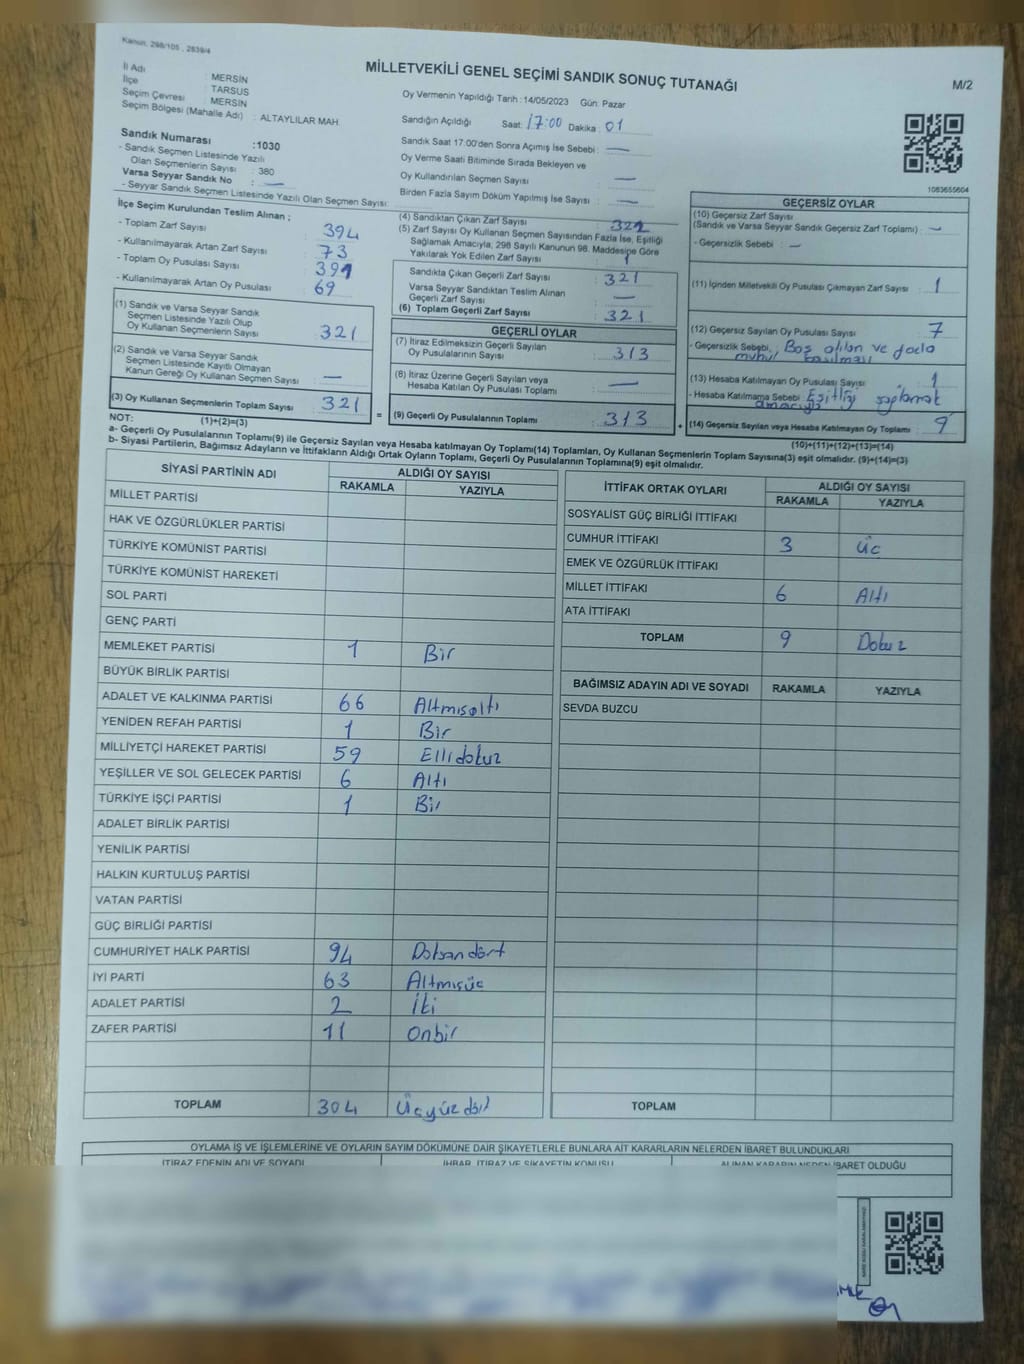 Kanun, 298/105 , 2839/4
MİLLETVEKİLİ GENEL SEÇİMİ SANDIK SONUÇ TUTANAĞI
M/2
İl Adı : MERSİN
İlçe : TARSUS
Seçim Çevresi : MERSİN
Seçim Bölgesi (Mahalle Adı) : ALTAYLILAR MAH.
Sandık Numarası :1030
- Sandık Seçmen Listesinde Yazılı
Olan Seçmenlerin Sayısı : 380
Varsa Seyyar Sandık No : —
- Seyyar Sandık Seçmen Listesinde Yazılı Olan Seçmen Sayısı:
Oy Vermenin Yapıldığı Tarih : 14/05/2023 Gün: Pazar
Sandığın Açıldığı Saat: 17:00 Dakika : 01
Sandık Saat 17.00'den Sonra Açımış İse Sebebi : —
Oy Verme Saati Bitiminde Sırada Bekleyen ve
Oy Kullandırılan Seçmen Sayısı : —
Birden Fazla Sayım Döküm Yapılmış İse Sayısı : —
1083655604
İlçe Seçim Kurulundan Teslim Alınan ;
- Toplam Zarf Sayısı : 394
- Kullanılmayarak Artan Zarf Sayısı : 73
- Toplam Oy Pusulası Sayısı : 391
- Kullanılmayarak Artan Oy Pusulası : 69
(1) Sandık ve Varsa Seyyar Sandık
Seçmen Listesinde Yazılı Olup
Oy Kullanan Seçmenlerin Sayısı : 321
(2) Sandık ve Varsa Seyyar Sandık
Seçmen Listesinde Kayıtlı Olmayan
Kanun Gereği Oy Kullanan Seçmen Sayısı : —
(3) Oy Kullanan Seçmenlerin Toplam Sayısı : 321
(1)+(2)=(3)
(4) Sandıktan Çıkan Zarf Sayısı : 322
(5) Zarf Sayısı Oy Kullanan Seçmen Sayısından Fazla İse, Eşitliği
Sağlamak Amacıyla, 298 Sayılı Kanunun 98. Maddesine Göre
Yakılarak Yok Edilen Zarf Sayısı : 1
Sandıkta Çıkan Geçerli Zarf Sayısı : 321
Varsa Seyyar Sandıktan Teslim Alınan
Geçerli Zarf Sayısı : —
(6) Toplam Geçerli Zarf Sayısı : 321
GEÇERLİ OYLAR
(7) İtiraz Edilmeksizin Geçerli Sayılan
Oy Pusulalarının Sayısı : 313
(8) İtiraz Üzerine Geçerli Sayılan veya
Hesaba Katılan Oy Pusulası Toplamı : —
= (9) Geçerli Oy Pusulalarının Toplamı : 313 +
GEÇERSİZ OYLAR
(10) Geçersiz Zarf Sayısı
(Sandık ve Varsa Seyyar Sandık Geçersiz Zarf Toplamı) : —
- Geçersizlik Sebebi : —
(11) İçinden Milletvekili Oy Pusulası Çıkmayan Zarf Sayısı : 1
(12) Geçersiz Sayılan Oy Pusulası Sayısı : 7
- Geçersizlik Sebebi : Boş atılan ve fazla
mühür basılması
(13) Hesaba Katılmayan Oy Pusulası Sayısı : 1
- Hesaba Katılmama Sebebi : Eşitliği sağlamak
amacıyla
(14) Geçersiz Sayılan veya Hesaba Katılmayan Oy Toplamı : 9
(10)+(11)+(12)+(13)=(14)
NOT:
a- Geçerli Oy Pusulalarının Toplamı(9) ile Geçersiz Sayılan veya Hesaba katılmayan Oy Toplamı(14) Toplamları, Oy Kullanan Seçmenlerin Toplam Sayısına(3) eşit olmalıdır. (9)+(14)=(3)
b- Siyasi Partilerin, Bağımsız Adayların ve İttifakların Aldığı Ortak Oyların Toplamı, Geçerli Oy Pusulalarının Toplamına(9) eşit olmalıdır.
SİYASİ PARTİNİN ADI ALDIĞI OY SAYISI
RAKAMLA YAZIYLA
MİLLET PARTİSİ
HAK VE ÖZGÜRLÜKLER PARTİSİ
TÜRKİYE KOMÜNİST PARTİSİ
TÜRKİYE KOMÜNİST HAREKETİ
SOL PARTİ
GENÇ PARTİ
MEMLEKET PARTİSİ 1 Bir
BÜYÜK BİRLİK PARTİSİ
ADALET VE KALKINMA PARTİSİ 66 Altmışaltı
YENİDEN REFAH PARTİSİ 1 Bir
MİLLİYETÇİ HAREKET PARTİSİ 59 Ellidokuz
YEŞİLLER VE SOL GELECEK PARTİSİ 6 Altı
TÜRKİYE İŞÇİ PARTİSİ 1 Bir
ADALET BİRLİK PARTİSİ
YENİLİK PARTİSİ
HALKIN KURTULUŞ PARTİSİ
VATAN PARTİSİ
GÜÇ BİRLİĞİ PARTİSİ
CUMHURİYET HALK PARTİSİ 94 Doksandört
İYİ PARTİ 63 Altmışüç
ADALET PARTİSİ 2 İki
ZAFER PARTİSİ 11 Onbir
TOPLAM 304 Üçyüzdört
İTTİFAK ORTAK OYLARI ALDIĞI OY SAYISI
RAKAMLA YAZIYLA
SOSYALİST GÜÇ BİRLİĞİ İTTİFAKI
CUMHUR İTTİFAKI 3 Üç
EMEK VE ÖZGÜRLÜK İTTİFAKI
MİLLET İTTİFAKI 6 Altı
ATA İTTİFAKI
TOPLAM 9 Dokuz
BAĞIMSIZ ADAYIN ADI VE SOYADI RAKAMLA YAZIYLA
SEVDA BUZCU
TOPLAM
OYLAMA İŞ VE İŞLEMLERİNE VE OYLARIN SAYIM DÖKÜMÜNE DAİR ŞİKAYETLERLE BUNLARA AİT KARARLARIN NELERDEN İBARET BULUNDUKLARI
İTİRAZ EDENİN ADI VE SOYADI İHBAR, İTİRAZ VE ŞİKAYETİN KONUSU ALINAN KARARIN NEDEN İBARET OLDUĞU